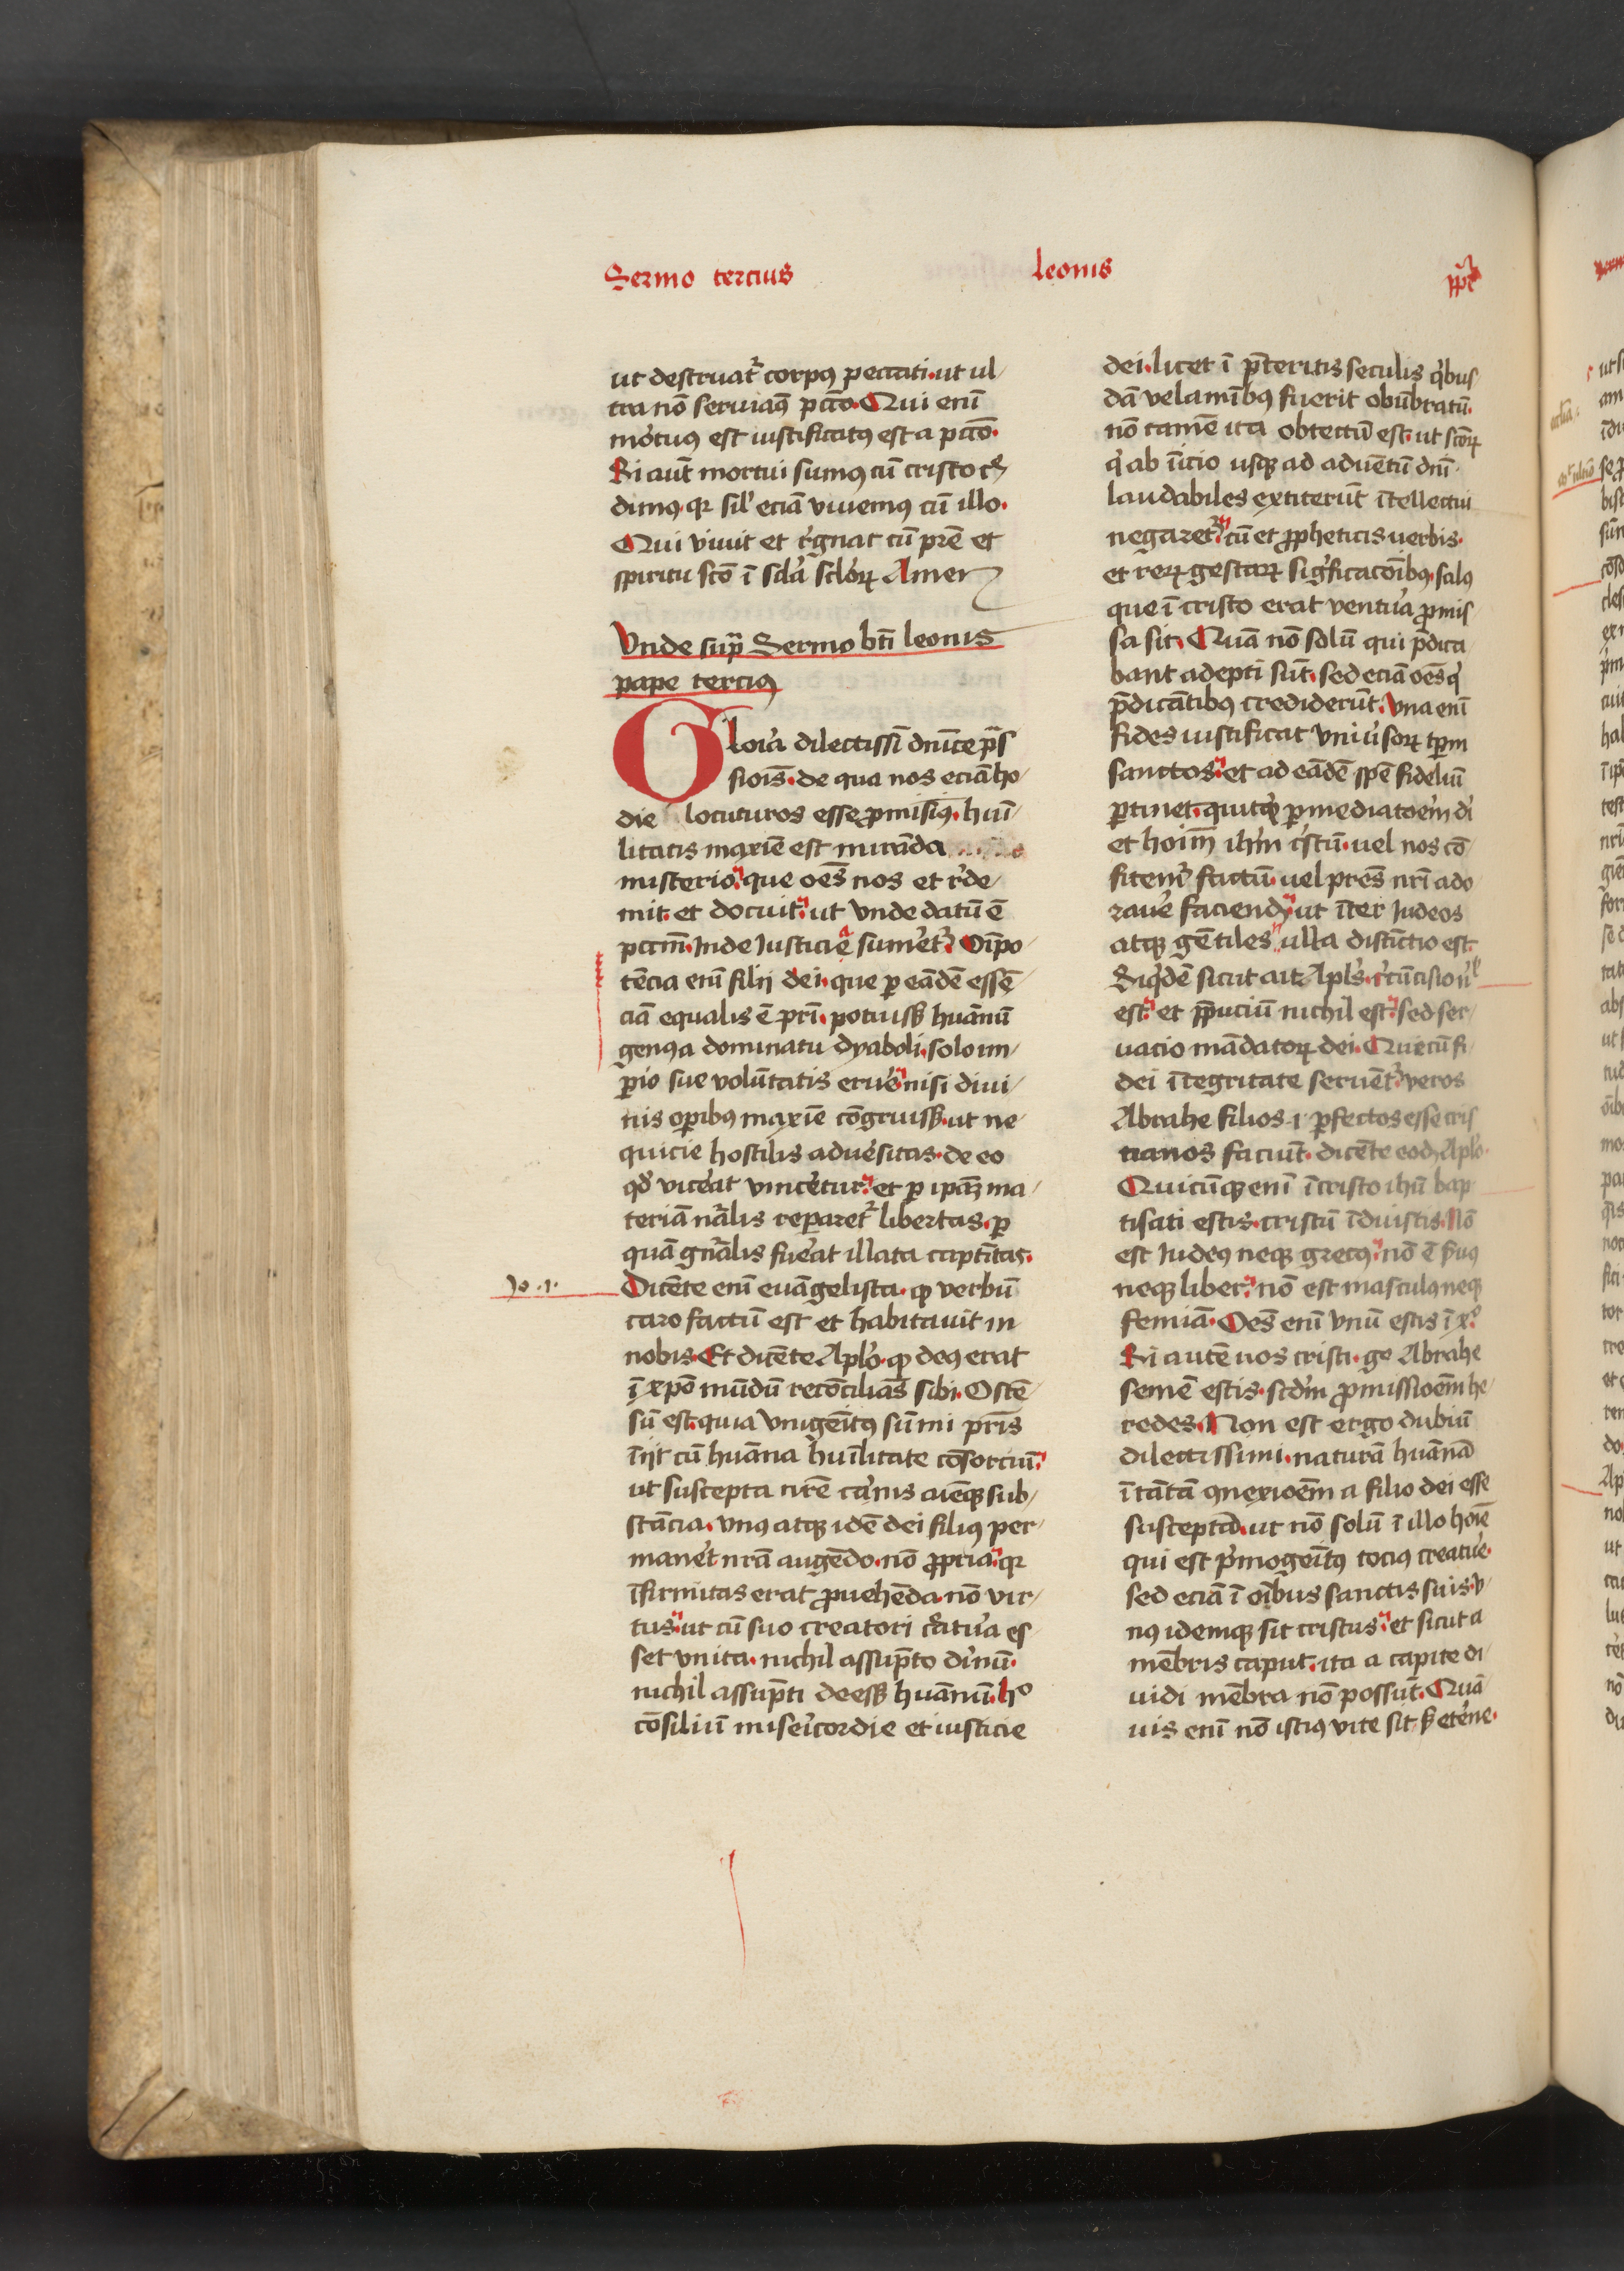 Sermo tercius leonis ꝑpe
ut destruat᷑ corpꝰ peccati · ut ul
tra nō seruiaꝰ pctō · Qui enī
mortuꝰ est iustificatꝰ est a pctō ·
Si aut̄ mortui sumꝰ cū cristo c̄
dimꝰ · qꝛ sil' eciā viuemꝰ cū illo ·
Qui viuit et r̄gnat cū prē et
spiritu scō ī scl'a scl'oꝝ Amen
Vnde supra Sermo bti leonis
pape terciꝰ
Gloria dilectissī dnīce pas
siois̄ · de qua nos eciā ho
die locuturos esse ꝓmisimꝰ · huī
litatis maxīe est miranda
misterio · que oēs nos et r̄de
mit · et docuit · ut vnde datū ē
pctm̄ · Inde Iusticie sumet᷑ · Oīpo
tēcia enī filij dei · que ꝑ eādē essē
ciā equalis ē prī · potuiss₃ huānū
genꝰ a dominatu dyaboli · solo im
ꝑio sue volūtatis eruē · nisi diui
nis oꝑibꝰ maxīe cōgruiss₃ · ut ne
quicie hostilis aduersitas · de eo
qđ vicerat vincetur · et ꝑ ipaꝫ ma
teriā nrālis reꝑaret᷑ libertas · ꝑ
quā gn̄ralis fuerat illata captiuitas ·
Jo · 1 ·
Dicēte enī euāgelista · ꝙ verbū
caro factū est et habitauit in
nobis · Et dicēte Aplo · ꝙ deꝰ erat
ī xpō mūdū recōcilians sibi · Ostē
sū est · quia vnigeītꝰ sūmi pris̄
īijt cū huāna huīlitate cōsorciū ·
ut suscepta nrē carnis aīeqꝫ sub
stācia · vnꝰ atqꝫ idē dei filiꝰ per
manet · nrā augēdo · nō ꝓpria · qꝛ
īfirmitas erat ꝓuehēda · nō vir
tus · ut cū suo creatori creatura es
set vnita · nichil assūpto diuinū ·
nichil assūpti deess₃ huānū · ho
cōsiliū misericordie et iusticie
dei · licet ī p̄teritis seculis qibus
dā velamībꝰ fuerit obūbratū ·
nō tamē ita obtectū est · ut sctōꝝ
qi ab īicio usqꝫ ad aduētū dnī ·
laudabiles extiterūt ītellectui
negaret᷑ · cū et ꝓpheticis uerbis ·
et reꝝ gestaꝝ sigificacōībꝰ · salꝰ
que ī cristo erat ventura ꝓmis
sa sit · Quā nō solū qui p̄dica
bant adepti sūt · sed eciā oēs qi
p̄dicātibꝰ crediderūt · Vna enī
fides iustificat vniūsoꝝ tꝑm
sanctos · et ad eādē spē fideliū
ꝑtinet · quitqd ꝑ mediatoēm di
et hoīm ihm̄ cristū · uel nos cō
fitemr̄ factū · uel pres̄ nrī ado
rauē faciendū · ut īter Iudeos
atqꝫ gētiles · ulla distictio est ·
Siqidē sicut ait Apls · circūcisio nl
est · et p̄puciū nichil est · sed ser
uacio mādatoꝝ dei · Que cū fi
dei ītegritate seruet᷑ · veros
Abrahe filios · i · ꝑfectos esse cris
tianos faciūt · dicēte eodē Aplo ·
Quicūqꝫ enī ī cristo ihū bap
tisati estis · cristū īduistis · Nō
est Iudeꝰ neqꝫ grecꝰ · nō ē seruꝰ
neqꝫ liber · nō est masculꝰ neqꝫ
femiā · Oēs enī vnū estis ī xo
Si autē uos cristi · go Abrahe
semē estis · scdm̄ ꝓmissioēm he
redes · Non est ergo dubiū
dilectissimi · naturā huānā
ī tātā ꝯnexioēm a filio dei esse
susceptā · ut nō solū ī illo hoīe
qui est p̄mogeītꝰ tociꝰ creature ·
sed eciā ī oībus sanctis suis · v
nꝰ idemqꝫ sit cristus · et sicut a
mēbris caput · ita a capite di
uidi mēbra nō possūt · Quā
uis enī nō istiꝰ vite sit · s₃ eterne ·